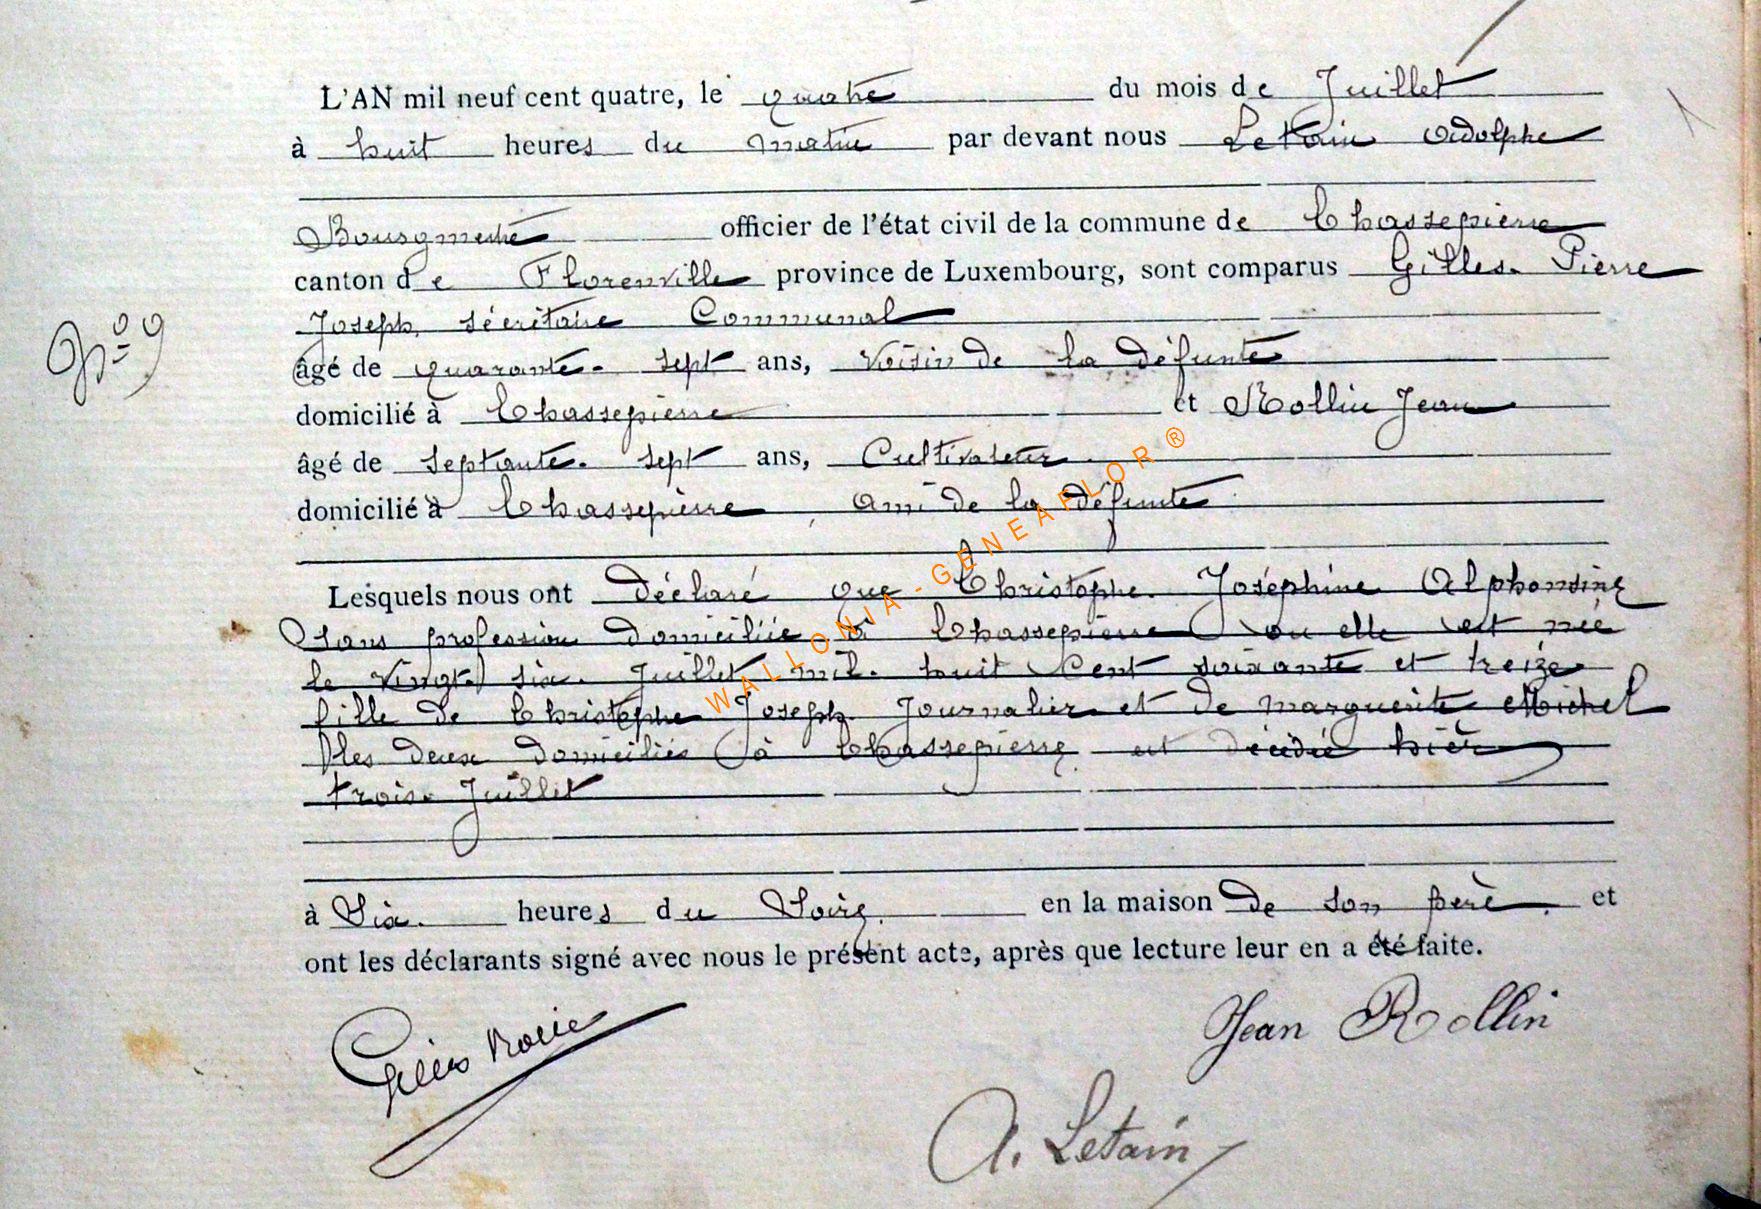 L'AN mil neuf cent quatre, le quatre du mois de Juillet
à huit heures du matin par devant nous Letain Adolphe
Bourgmestre officier de l'état civil de la commune de Chassepierre
canton de Florenville province de Luxembourg, sont comparus Gilles. Pierre
Joseph, sécrétaire Communal
âgé de quarante-sept ans, voisin de la défunte
domicilié à Chassepierre et Rollin Jean
âgé de septante-sept ans, Cultivateur
domicilié à Chassepierre, ami de la défunte
Lesquels nous ont déclaré que Christophe. Joséphine Alphonsine
sans profession domiciliée à Chassepierre où elle est née
le vingt-six. Juillet mil-huit cent soixante et treize
fille de Christophe Joseph. Journalier et de marguerite Michel
les deux domiciliés à Chassepierre, est décédée hier
trois. Juillet
à Six. heures du Soir, en la maison de son père. et
ont les déclarants signé avec nous le présent acte, après que lecture leur en a été faite.
N° 9
Jean Rollin
A. Letain
WALLONIA-GENEAFLOR®